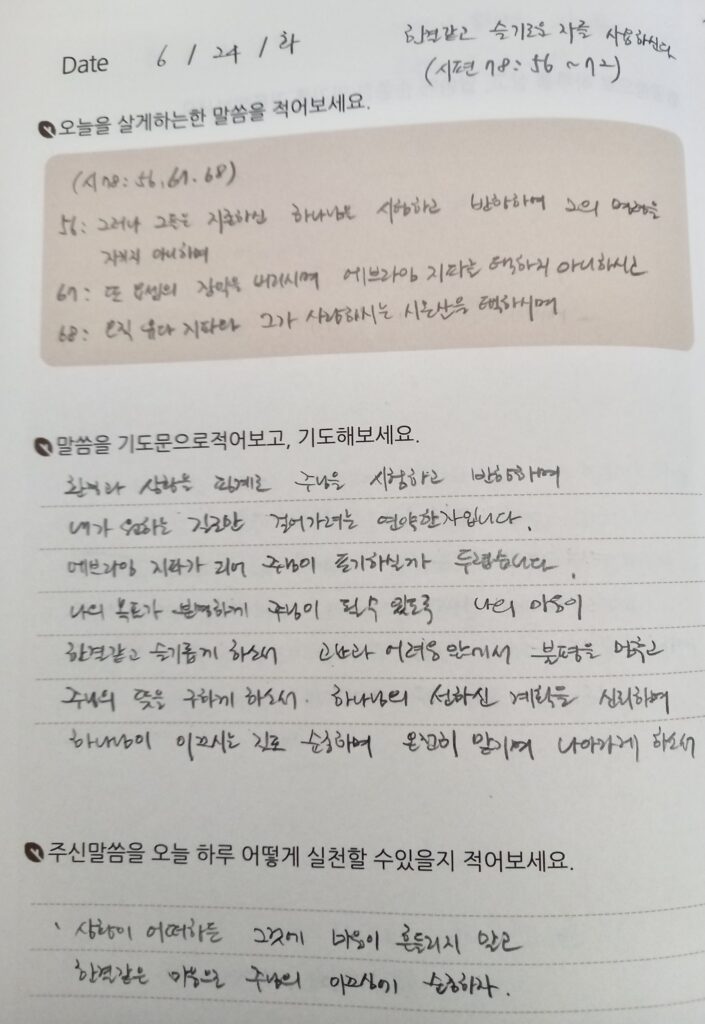 한결같고 슬기로운 자를 사용하신다
Date 6 / 24 / 화
(시편 78 : 56 ~ 72)
오늘을 살게하는한 말씀을 적어보세요.
(시 78 : 56, 67. 68)
56 : 그러나 그들은 지존하신 하나님을 시험하고 반항하여 그의 명령을
지키지 아니하며
67 : 또 요셉의 장막을 버리시며 에브라임 지파를 택하지 아니하시고
68 : 오직 유다 지파와 그가 사랑하시는 시온산을 택하시며
말씀을 기도문으로적어보고, 기도해보세요.
환경과 상황을 핑계로 주님을 시험하고 반항하며
내가 원하는 길로만 걸어가려는 연약한자입니다.
에브라임 지파가 되어 주님이 포기하실까 두렵습니다.
나의 목표가 분명하게 주님이 될 수 있도록 나의 마음이
한결같고 슬기롭게 하소서 고난과 어려움 안에서 불평을 멈추고
주님의 뜻을 구하게 하소서. 하나님의 선하신 계획을 신뢰하며
하나님이 이끄시는 길로 순종하며 온전히 맡기며 나아가게 하소서
주신말씀을 오늘 하루 어떻게 실천할 수있을지 적어보세요.
상황이 어떠하든 그것에 마음이 흔들리지 말고
한결같은 마음으로 주님의 이끄심에 순종하자.